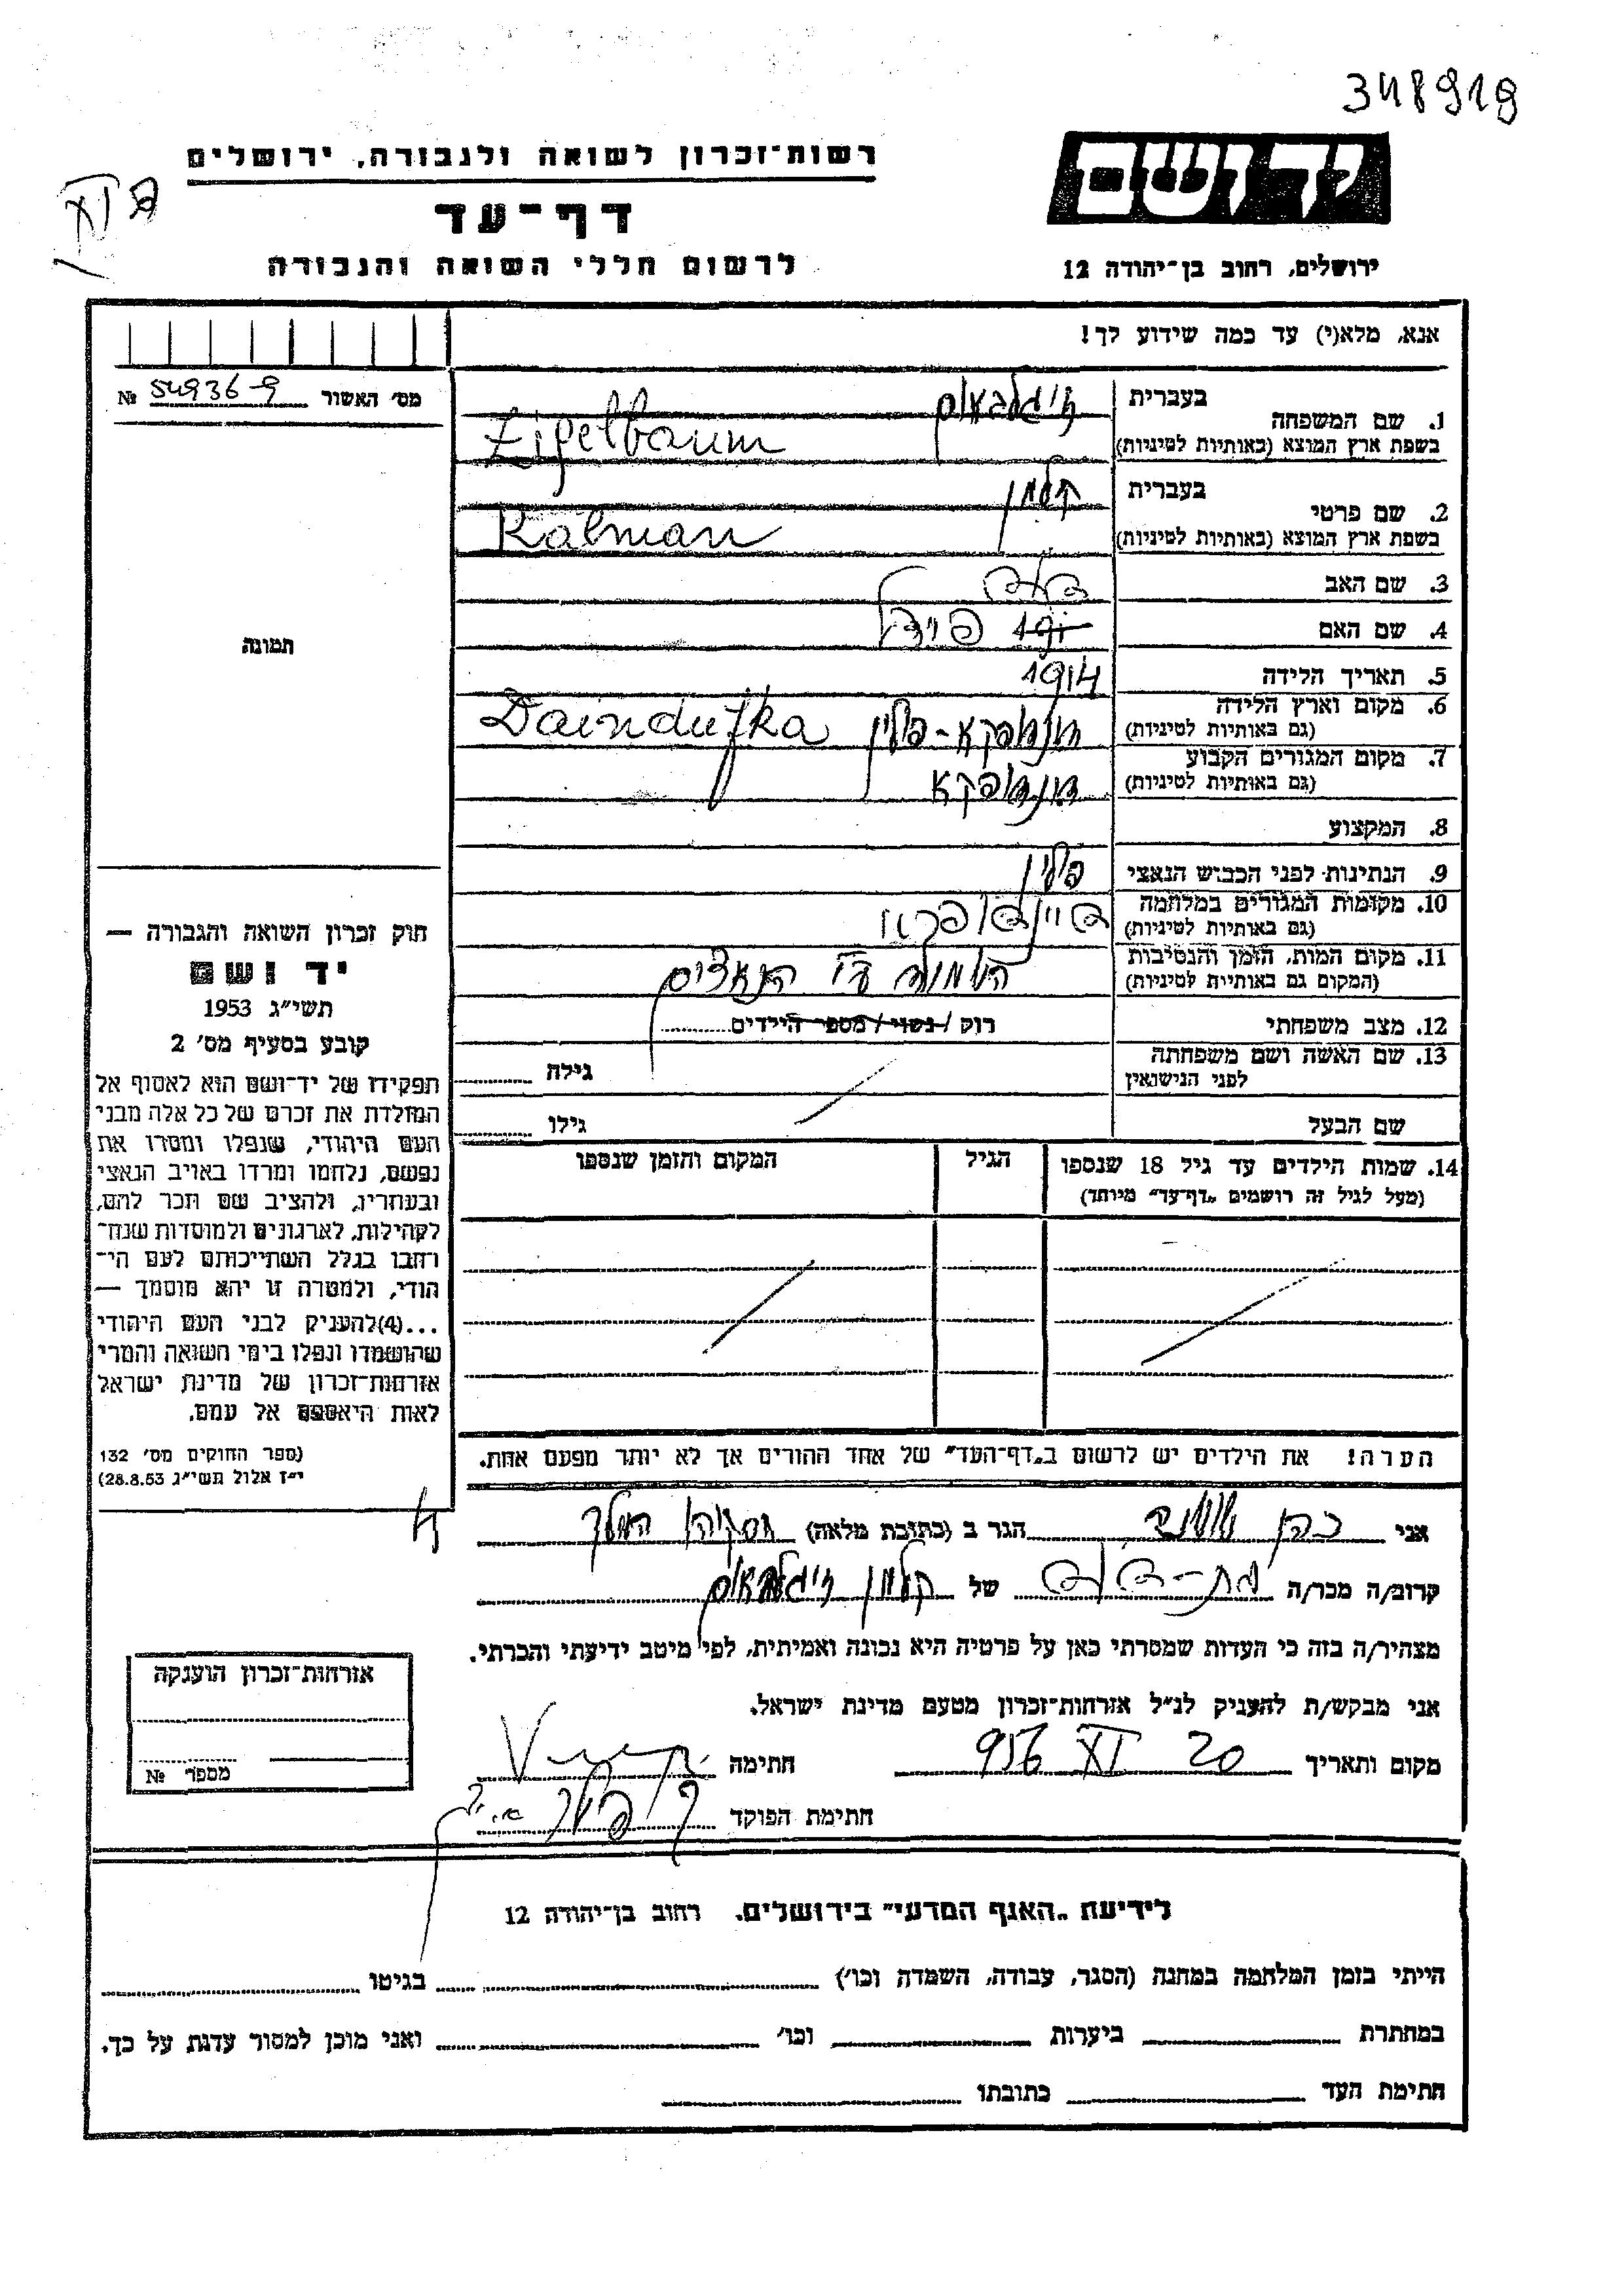 348919
רשות־זכרון לשואה ולגבורה, ירושלים
יד ושם
דף־עד
לרשום חללי השואה והגבורה
ירושלים, רחוב בן־יהודה 12
אנא, מלא(י) עד כמה שידוע לך!
מס׳ האשור 54936-9 №
1. שם המשפחה
בעברית ציגלבאום
בשפת ארץ המוצא (באותיות לטיניות) Zigelbaum
2. שם פרטי
בעברית קלמן
בשפת ארץ המוצא (באותיות לטיניות) Kalman
3. שם האב
4. שם האם
5. תאריך הלידה 1914
6. מקום וארץ הלידה פולין Daindufka
(גם באותיות לטיניות)
7. מקום המגורים הקבוע
(גם באותיות לטיניות)
8. המקצוע
9. הנתינות לפני הכבוש הנאצי פולין
10. מקומות המגורים במלחמה
(גם באותיות לטיניות)
11. מקום המות, הזמן והנסיבות הושמד ע״י הנאצים
(המקום גם באותיות לטיניות)
12. מצב משפחתי רוק / נשוי / מספר הילדים
13. שם האשה ושם משפחתה
לפני הנישואין
גילה
שם הבעל גילו
14. שמות הילדים עד גיל 18 שנספו
(מעל לגיל זה רושמים „דף־עד״ מיוחד)
הגיל
המקום והזמן שנספו
תמונה
חוק זכרון השואה והגבורה —
יד ושם
תשי״ג 1953
קובע בסעיף מס׳ 2
תפקידו של יד־ושם הוא לאסוף אל
המולדת את זכרם של כל אלה מבני
העם היהודי, שנפלו ומסרו את
נפשם, נלחמו ומרדו באויב הנאצי
ובעוזריו, ולהציב שם וזכר להם,
לקהילות, לארגונים ולמוסדות שנח־
רבו בגלל השתייכותם לעם הי־
הודי, ולמטרה זו יהא מוסמך —
...(4)להעניק לבני העם היהודי
שהושמדו ונפלו בימי השואה והמרי
אזרחות־זכרון של מדינת ישראל
לאות היאספם אל עמם.
(ספר החוקים מס׳ 132
י״ז אלול תשי״ג 28.8.53)
הערה! את הילדים יש לרשום ב„דף־העד״ של אחד ההורים אך לא יותר מפעם אחת.
אני כהן הגר ב (כתובת מלאה)
קרוב/ה מכר/ה בת־דוד של קלמן ציגלבאום
מצהיר/ה בזה כי העדות שמסרתי כאן על פרטיה היא נכונה ואמיתית, לפי מיטב ידיעתי והכרתי.
אני מבקש/ת להעניק לנ״ל אזרחות־זכרון מטעם מדינת ישראל.
מקום ותאריך 20 XI 956 חתימה
חתימת הפוקד
אזרחות־זכרון הוענקה
מספר №
לידיעת „האגף המדעי״ בירושלים. רחוב בן־יהודה 12
הייתי בזמן המלחמה במחנה (הסגר, עבודה, השמדה וכו׳) בגיטו
במחתרת ביערות וכו׳ ואני מוכן למסור עדות על כך.
חתימת העד כתובתו